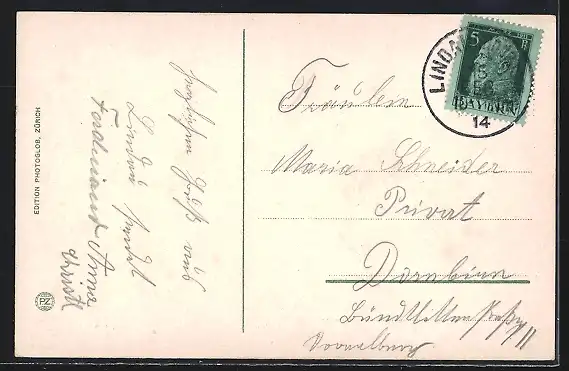 EDITION PHOTOGLOB, ZÜRICH
PZ
herzlichen Gruß aus
Lindau sendet
Ferdinand Anna
LINDAU
14
5
BAYERN
Fräulein
Maria Schneider
Privat
Dornbirn
Vorarlberg